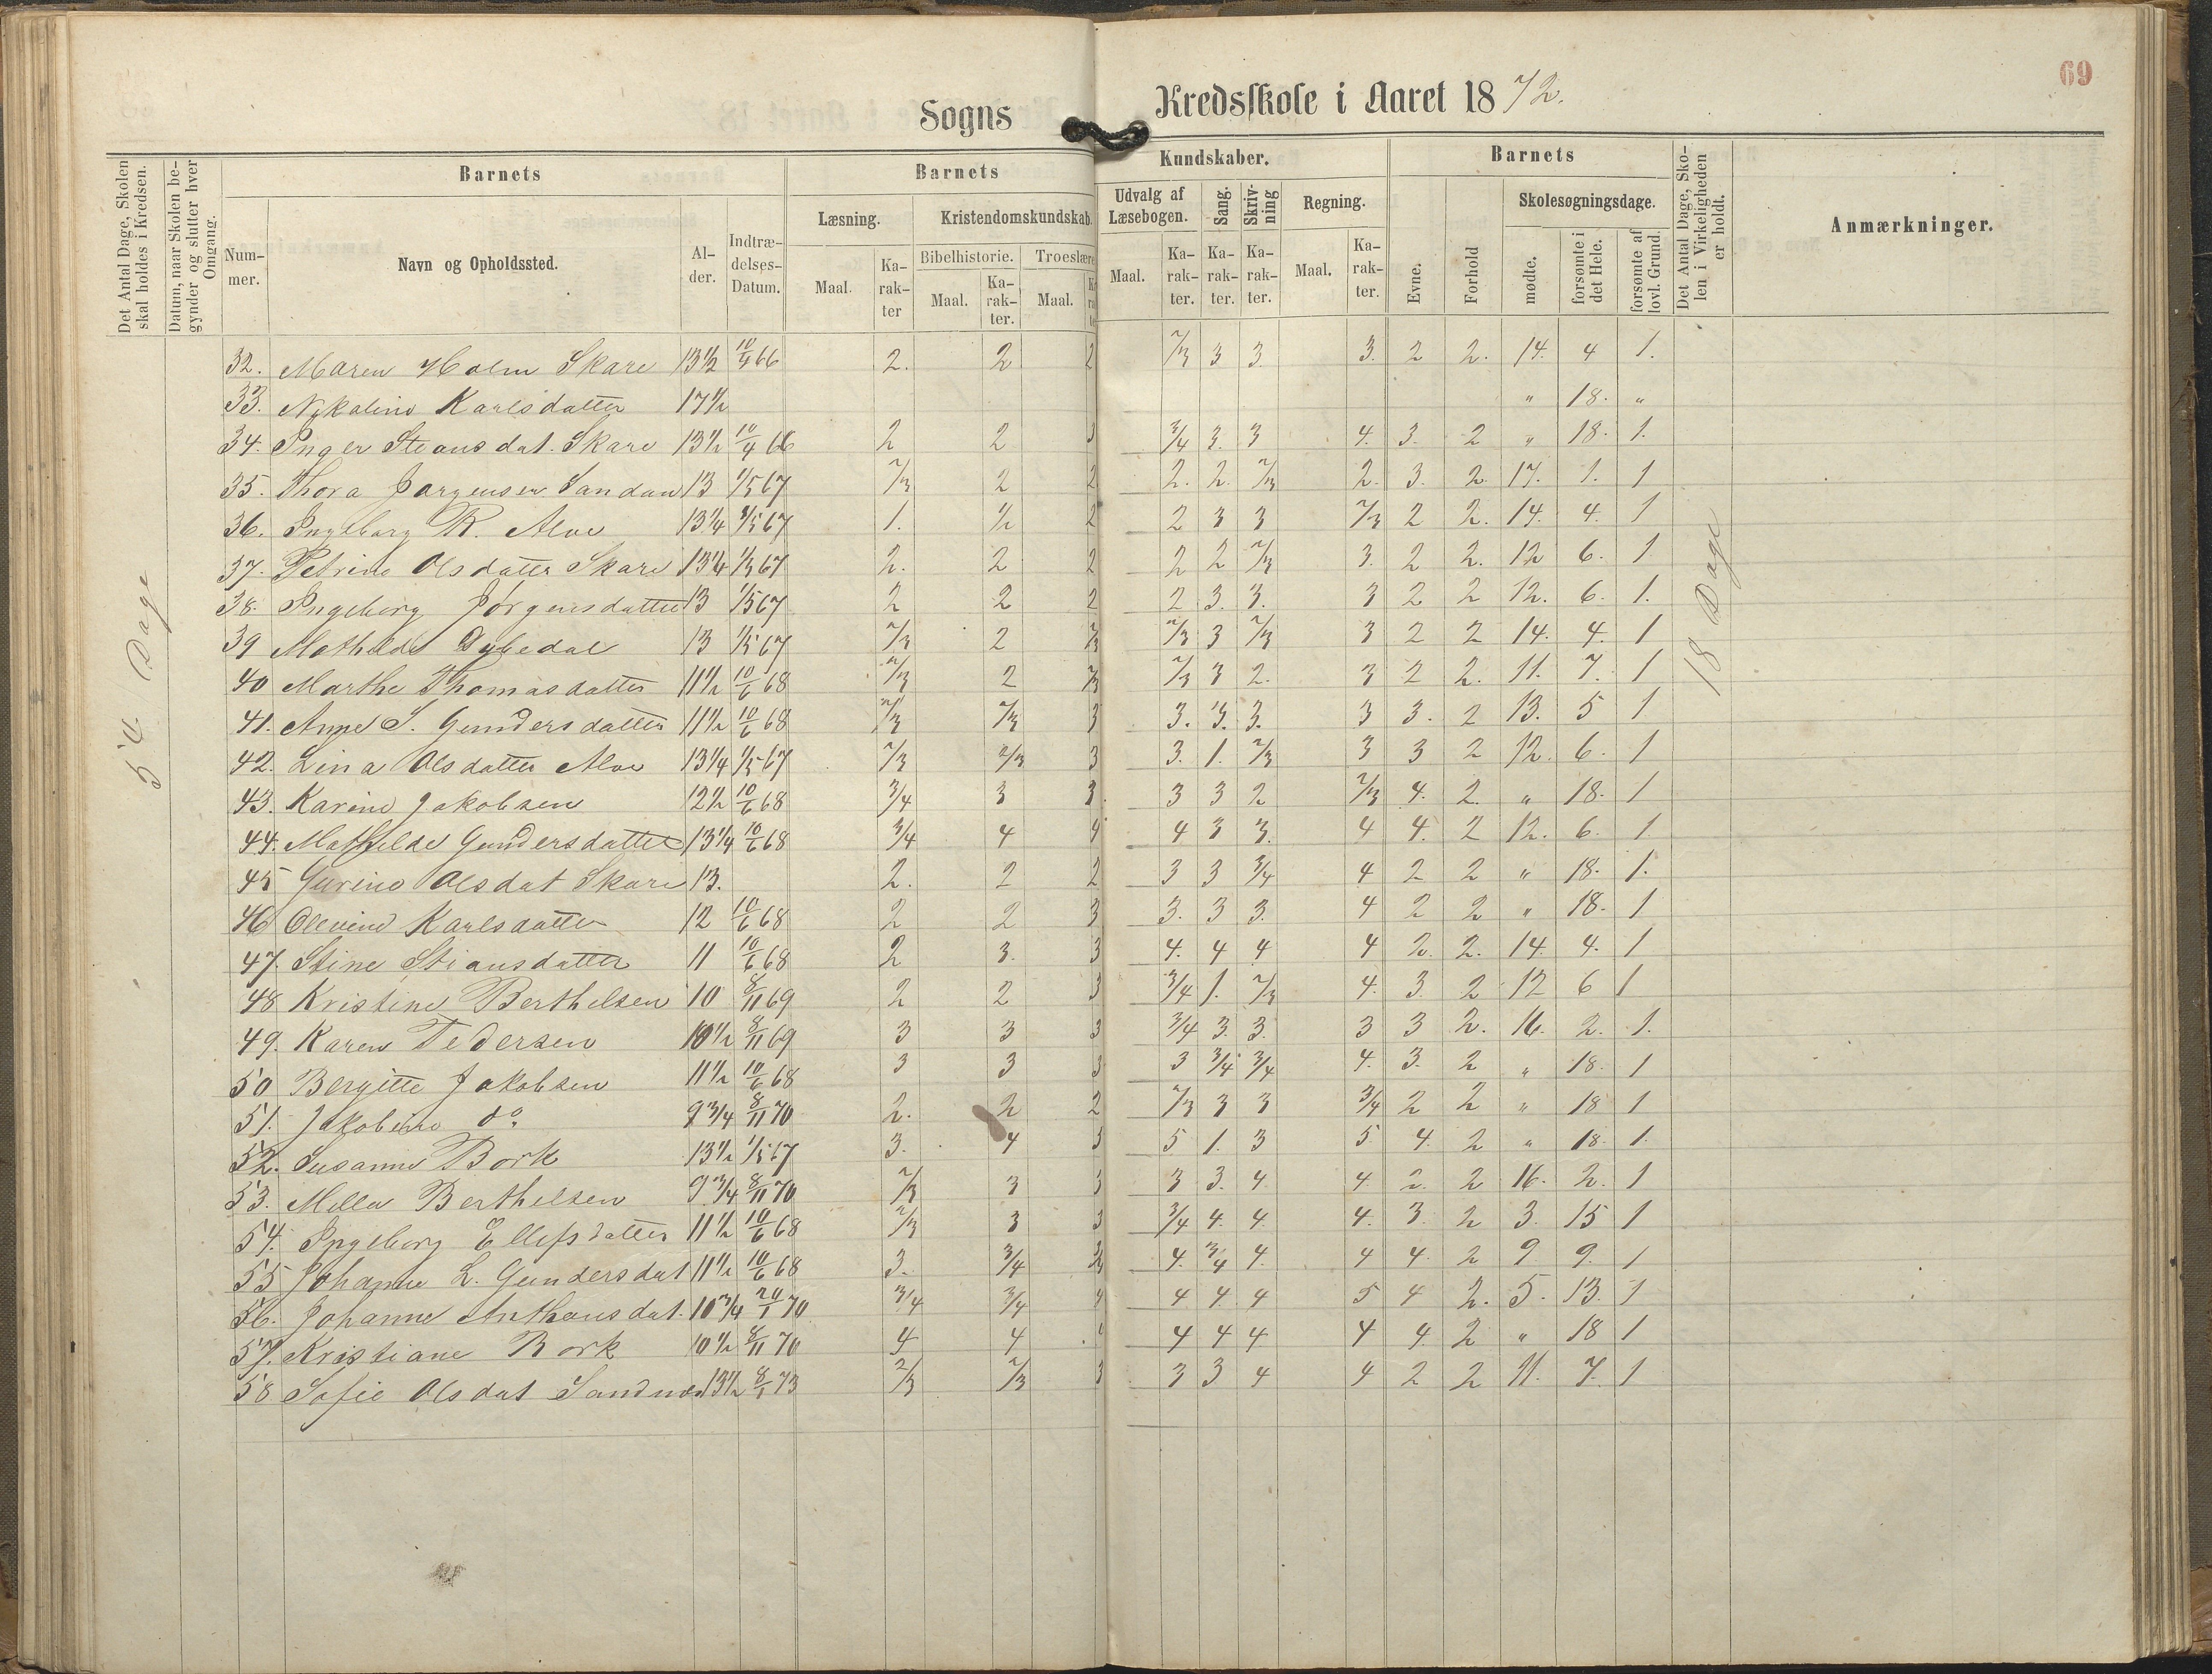 69
Sogns Kredsskole i Aaret 1872.
Det Antal Dage, Skolen skal holdes i Kredsen.
Datum, naar Skolen begynder og slutter hver Omgang.
Barnets
Num-mer.
Navn og Opholdssted.
Al-der.
Indtræ-delses-Datum.
Barnets Kundskaber.
Læsning.
Maal. Ka-rak-ter
Kristendomskundskab.
Bibelhistorie. Troeslære
Maal. Ka-rak-ter. Maal.
Udvalg af Læsebogen.
Maal. Ka-rak-ter.
Sang. Ka-rak-ter.
Skriv-ning Ka-rak-ter.
Regning.
Maal. Ka-rak-ter.
Barnets
Evne. Forhold
Skolesøgningsdage.
mødte. forsømte i det Hele. forsømte af lovl. Grund.
Det Antal Dage, Sko-len i Virkeligheden er holdt.
Anmærkninger.
54 Dage
18 Dage
32. Maren Holm Skare 13½ 10/4 66 2. 2 2 2/3 3 3. 3. 2 2. 14. 4 1.
33. Nykaline Karlsdatter 17½ " 18. "
34. Inger Steansdat. Skare 13½ 10/4 66 2 2 3 3/4 3. 3 4. 3. 2 " 18. 1.
35. Thora Jørgensen 13 1/5 67 2/3 2 2 2. 2. 2/3 2. 3. 2 17. 1. 1
36. Ingeborg R. Alve 13¼ 1/5 67 1. ½ 2 2 3 3 2/3 2 2. 14. 4. 1
37. Petrine Olsdatter Skare 13¼ 1/5 67 2. 2 2 2 2 2/3 3. 2 2. 12 6. 1
38. Ingeborg Jørgensdatter 13 1/5 67 2 2 2 2 3. 3. 3 2 2 12. 6. 1.
39 Mathilde Dybedal 13 1/5 67 2/3 2 2/3 2/3 3 2/3 3 2 2 14. 4. 1
40 Marthe Thomasdatter 11½ 10/6 68 2/3 2 2/3 2/3 3 2. 3 2 2. 11. 7. 1
41. Anne S. Gundersdatter 11½ 10/6 68 2/3 2/3 3 3. 3. 3. 3 3. 2 13. 5 1
42. Lina Olsdatter Alve 13¼ 1/5 67 2/3 2/3 3 3. 1. 2/3 3 3 2 12. 6. 1
43. Karine Jakobsen 12½ 10/6 68 3/4 3 3. 3 3 2 2/3 4. 2. " 18. 1
44. Mathilde Gundersdatter 13¼ 10/6 68 3/4 4 4 4 3 3. 4 4. 2 12. 6. 1
45 Gurine Olsdat Skare 13. 2. 2 2 3 3 3/4 4 2 2 " 18. 1.
46 Olevine Karlsdatter 12 10/6 68 2 2 3 3. 3 3. 4 2 2 " 18. 1
47. Stine Stiansdatter 11 10/6 68 2 3. 3 4. 4 4 4 2. 2. 14. 4. 1
48 Kristine Berthelsen 10 8/11 69 2 2 3 3/4 1. 2/3 4. 3. 2 12 6 1
49. Karen Tedersen 10½ 8/11 69 3 3 3 3/4 3. 3. 3 3 2. 16. 2. 1.
50 Bergitte Jakobsen 11½ 10/6 68 3 3 3 3 3/4 3/4 4. 3. 2 " 18. 1
51. Jakobine do. 9¾ 8/11 70 2. 2 2 2/3 3 3 3/4 2 2 " 18 1
52. Susanne Bork 13½ 1/5 67 3. 4 3 5 1. 3 5 4. 2 " 18. 1.
53. Milla Berthelsen 9¾ 8/11 70 2/3 3 3 3 3. 4 4. 2. 2 16. 2. 1
54. Ingeborg Ellefsdatter 11½ 10/6 68 2/3 3 3 3/4 4. 4. 4. 3. 2 3. 15 1
55 Johanne L. Gundersdat 11½ 10/6 68 3. 3/4 4. 3/4 4. 4 4. 2 9 9. 1
56. Johanne Anthonsdat. 10¾ 20/1 70 3/4 3/4 4 4 4. 4 5 4 2. 5. 13. 1
57. Kristiane Bork 10½ 8/11 70 4 4 4 4 4 4 4 2 " 18 1
58 Sofie Olsdat Sandnes 13½ 8/1 73 2/3 2/3 3 3 3 4 4 2 2 11. 7. 1